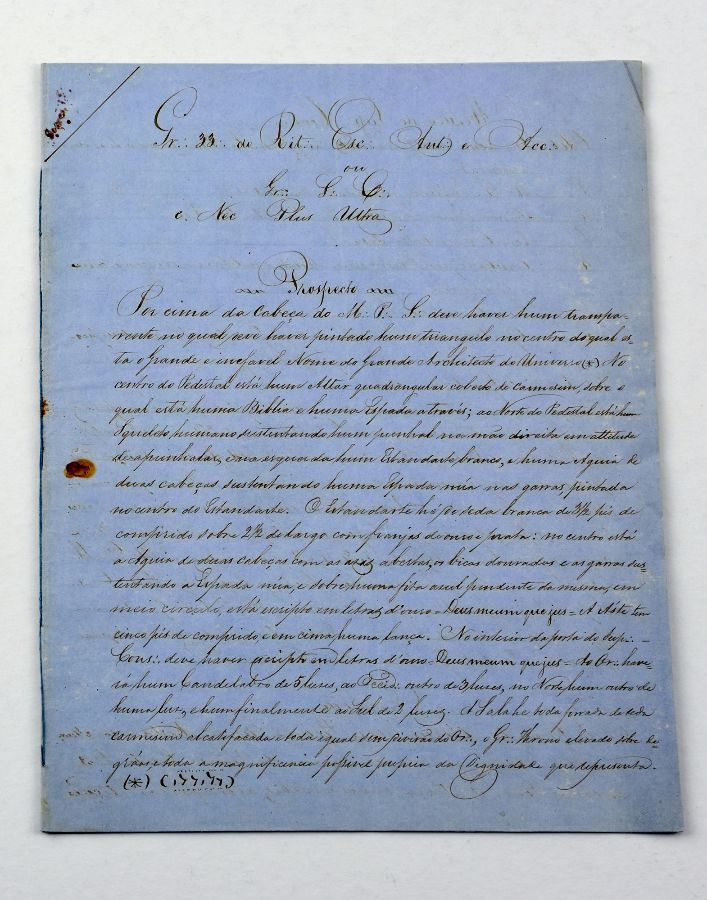 Gr∴ 33∴ do Rit∴ Esc∴ Ant∴ e Acc∴
ou
Gr∴ I∴ G∴
e Nec Plus Ultra
Prospecto
Por cima da Cabeça do M∴ P∴ S∴ deve haver hum transpa-
rente no qual deve haver pintado hum triangulo no centro do qual es-
ta o Grande e inefavel Nome do Grande Architecto do Universo (*) No
centro do Pedestal está hum Altar quadrangular coberto de carmesim, sobre o
qual está huma Biblia e huma Espada a través; ao Norte do Pedestal está hum
Squeleto humano sustentando hum punhal na mão direita em attitude
de apunhalar, e na esquerda hum Estandarte branco, e huma Aguia de
duas cabeças sustentando huma Espada núa nas garras pintada
no centro do Estandarte. O Estandarte hé de seda branca de 3½ pés de
comprido sobre 2½ de largo com franjas de ouro e prata: no centro está
a Aguia de duas cabeças com as azas abertas, os bicos dourados e as garras sus-
tentando a Espada núa, e sobre huma fita azul pendente da mesma, em
meio circulo, está escripto em letras d'ouro = Deus meum que jus = A Aste tem
cinco pés de comprido e em cima huma lança. No interior da porta do Sup∴
Cons∴ deve haver escripto em letras d'ouro = Deus meum que jus = Ao Or∴ have-
rá hum Candelabro de 5 luzes, ao Occid∴ outro de 3 luzes, no Norte hum outro de
huma luz, e hum finalmente ao Sul de 2 luzes. A Sala he toda forrada de seda
carmesim alcatifada e toda igual o Or∴, o Gr∴ Throno elevado sobre de-
gráos, e toda a magnificencia possivel propria da Dignidade que representa.
(*)